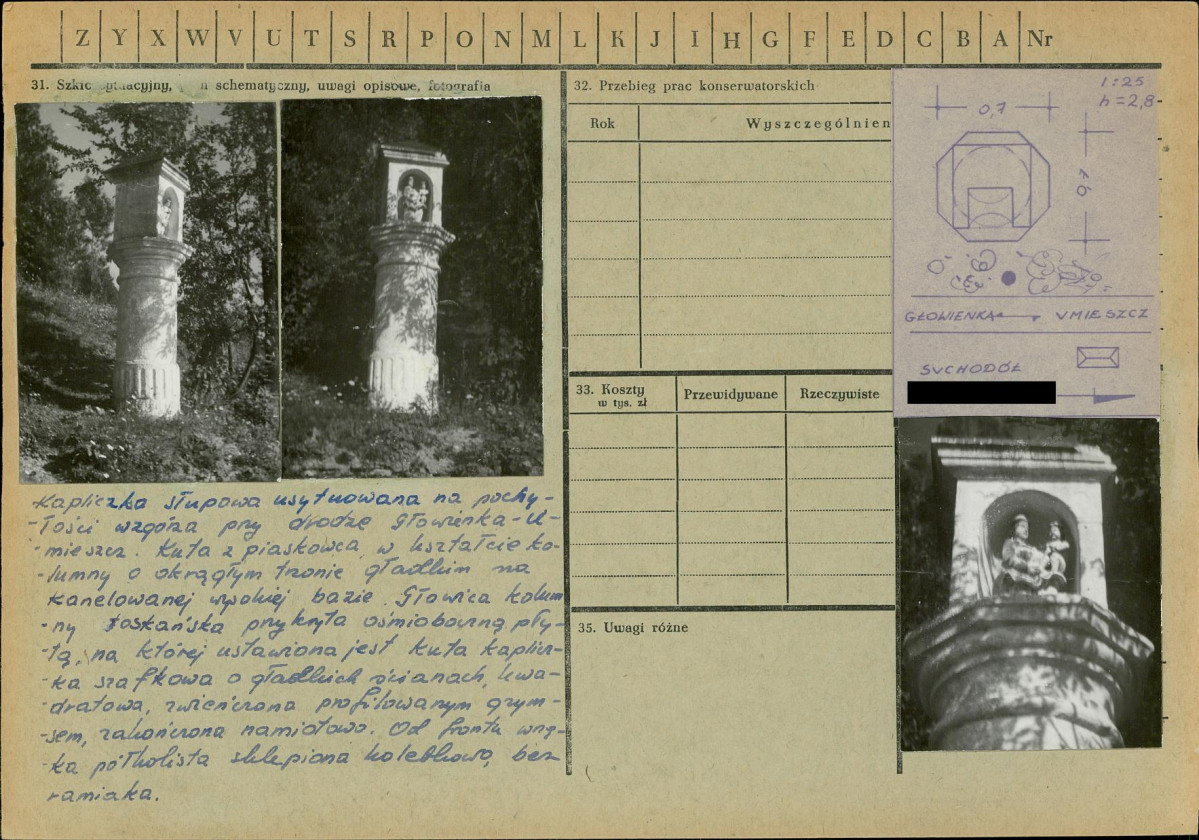 Z Y X W V U T S R P O N M L K J I H G F E D C B A Nr
31. Szkic sytuacyjny, n schematyczny, uwagi opisowe, fotografia
Kapliczka słupowa usytuowana na pochy-
-łości wzgórza przy drodze Głowienka-U-
-mieszcz. Kuta z piaskowca, w kształcie ko-
-lumny o okrągłym trzonie gładkim na
kanelowanej wysokiej bazie. Głowica kolum
-ny toskańska przykryta ośmioboczną pły-
-tą, na której ustawiona jest kuta kaplicz-
-ka szafkowa o gładkich ścianach, kwa-
-dratowa, zwieńczona profilowanym gzym-
-sem, zakończona namiotowo. Od frontu wnę-
-ka półkolista sklepiona kolebkowo, bez
ramiaka.
32. Przebieg prac konserwatorskich
Rok
Wyszczególnien
33. Koszty
w tys. zł
Przewidywane
Rzeczywiste
35. Uwagi różne
1:25
h=2,8
0,7
GŁOWIENKA
UMIESZCZ
SUCHODÓŁ